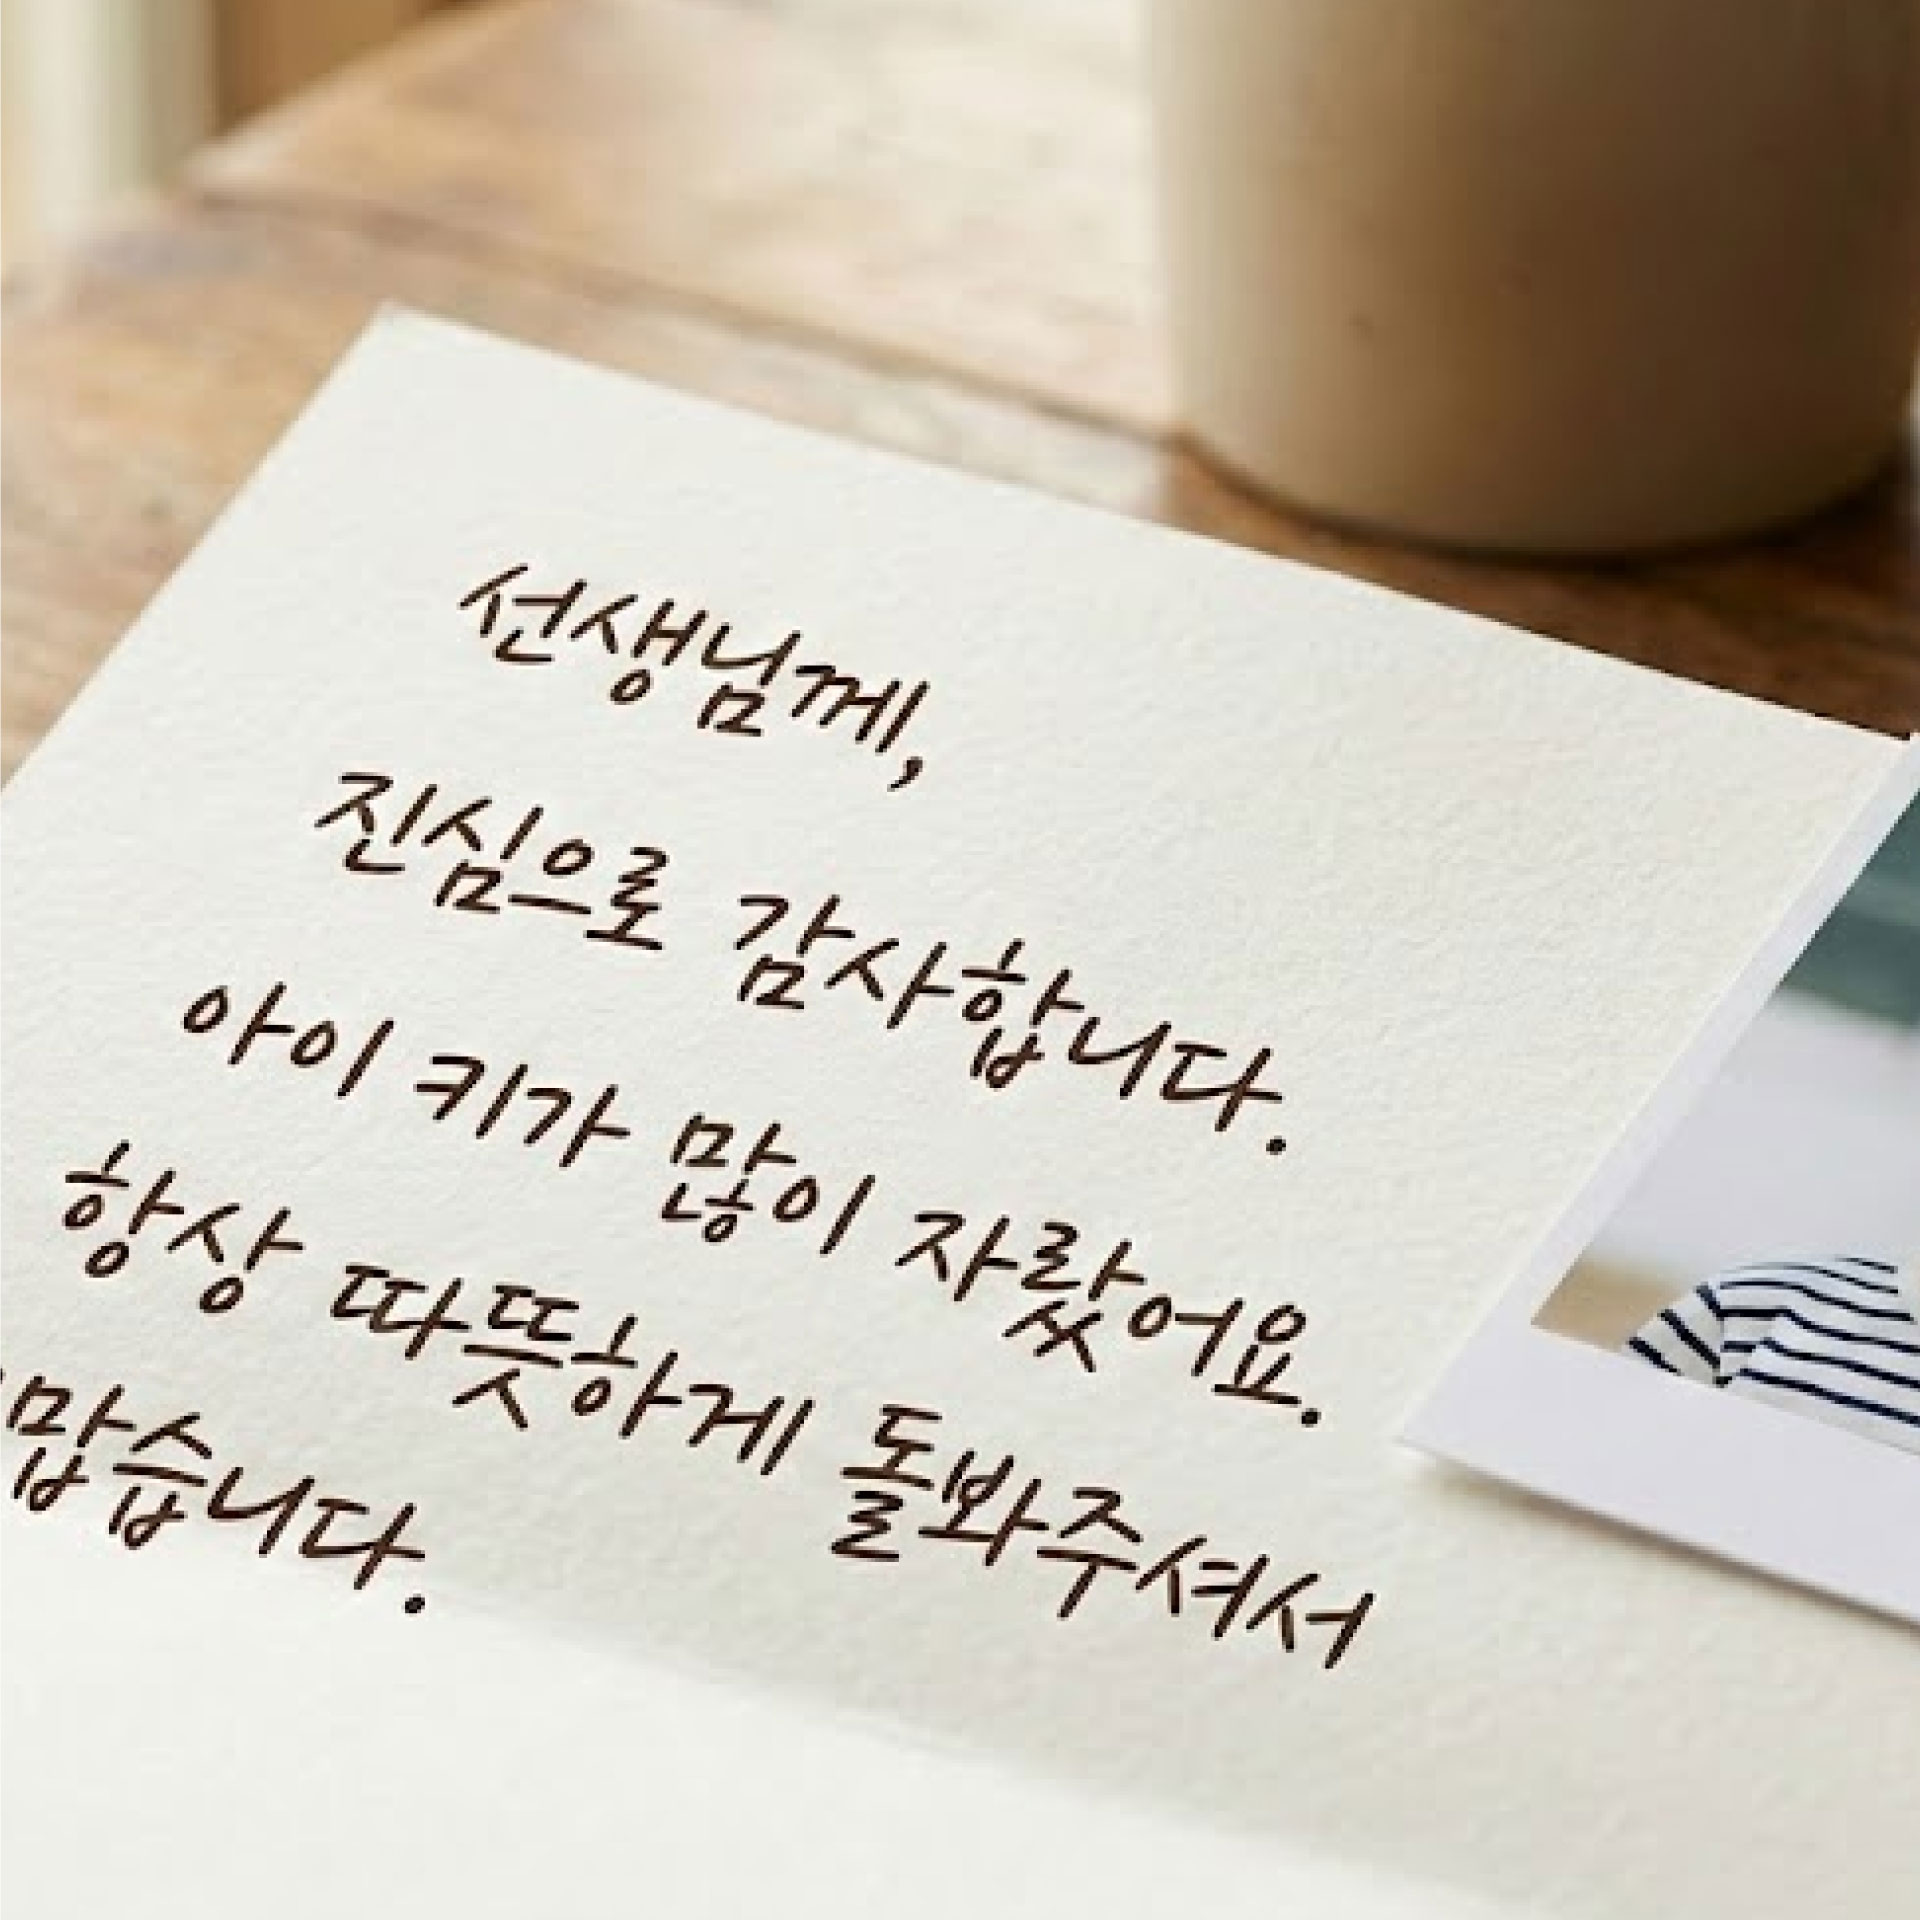 선생님께,
진심으로 감사합니다.
아이 키가 많이 자랐어요.
항상 따뜻하게 돌봐주셔서
맙습니다.